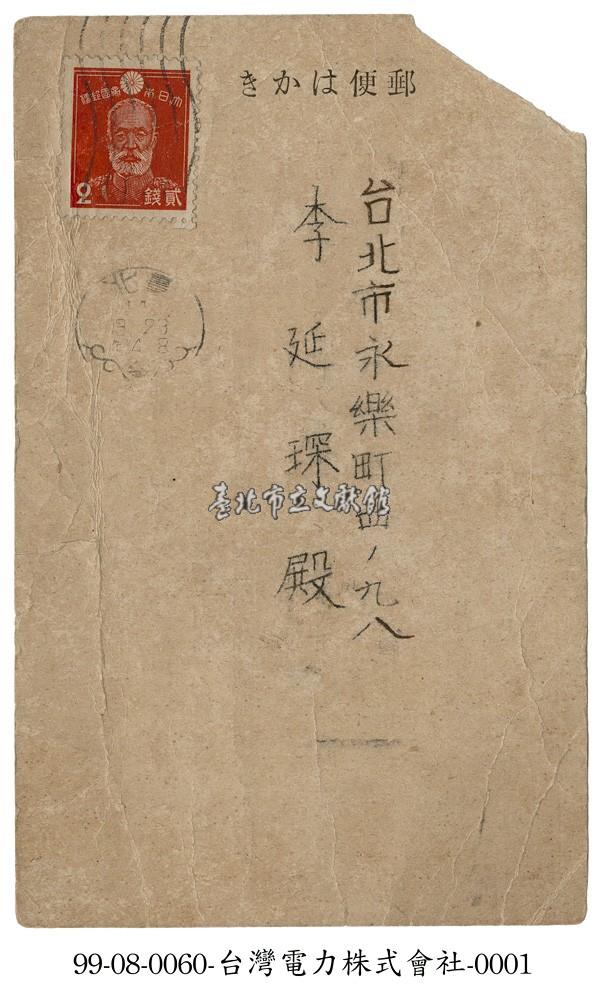 きかは便郵
大日本帝國郵便
2
貳錢
臺北
台北市永樂町四ノ九八
李延琛殿
臺北市立文獻館
99-08-0060-台灣電力株式會社-0001